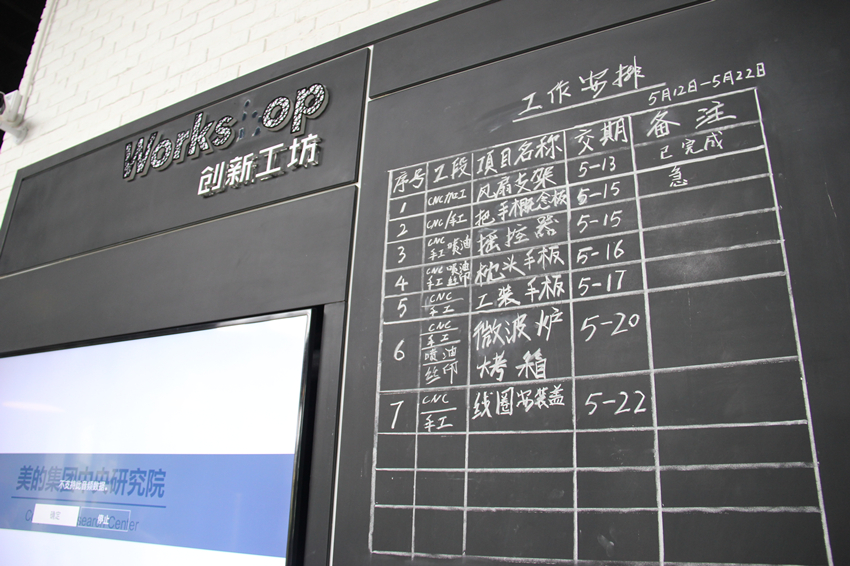 Workshop
创新工坊
工作安排
5月12日-5月22日
序号 工段 项目名称 交期 备注
1 CNC/加工 风扇支架 5-13 已完成
2 CNC/手工 把手概念板 5-15 急
3 CNC 手工 喷油 摇控器 5-15
4 CNC 喷油 手工 丝印 枕头手板 5-16
5 CNC 手工 工装手板 5-17
6 CNC 手工 喷油 丝印 微波炉烤箱 5-20
7 CNC 手工 线圈安装盖 5-22
美的集团中央研究院
不支持此音频数量。
确定 停止
Research Center